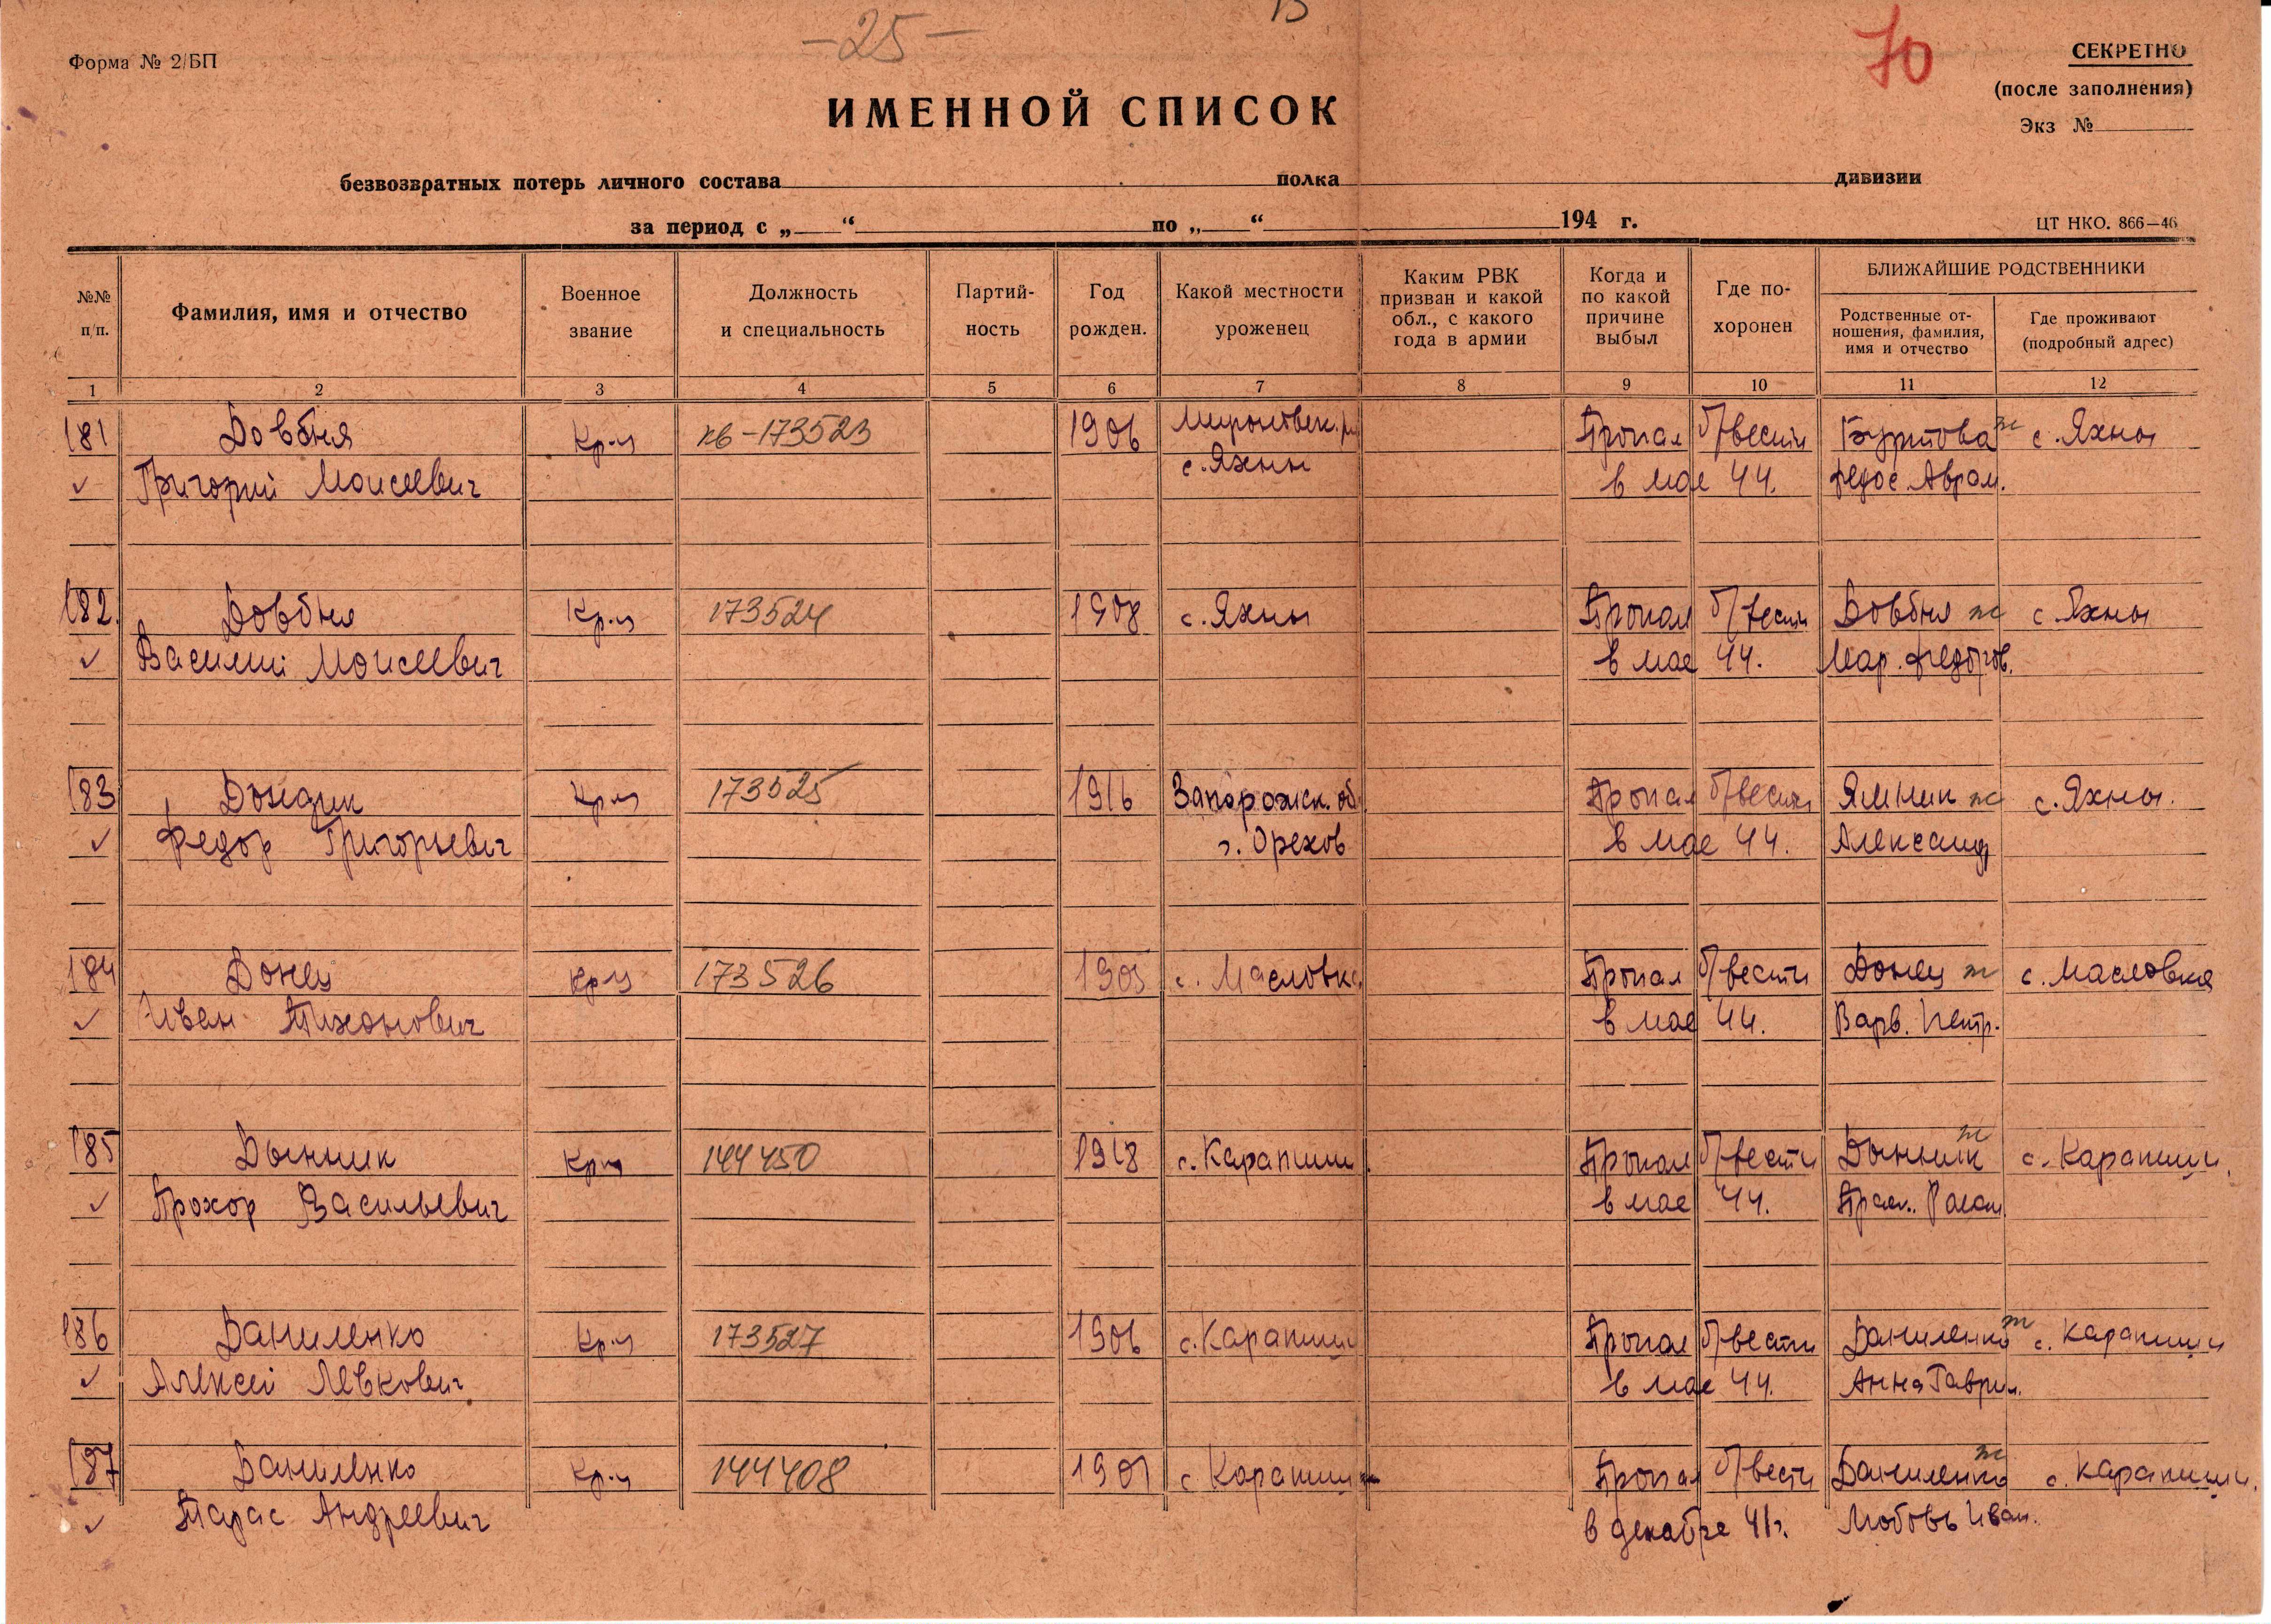 -25-
70
Форма № 2/БП
СЕКРЕТНО
(после заполнения)
Экз №
ИМЕННОЙ СПИСОК
безвозвратных потерь личного состава полка дивизии
за период с „ “ по „ “ 194 г.
ЦТ НКО. 866—46
№№ п/п.
Фамилия, имя и отчество
Военное звание
Должность и специальность
Партий-
ность
Год рожден.
Какой местности уроженец
Каким РВК
призван и какой
обл., с какого
года в армии
Когда и
по какой
причине
выбыл
Где по-
хоронен
БЛИЖАЙШИЕ РОДСТВЕННИКИ
Родственные от-
ношения, фамилия,
имя и отчество
Где проживают
(подробный адрес)
1 2 3 4 5 6 7 8 9 10 11 12
181 Довбня Кр-ц кв-173523 1906 Мироновск. р. Пропал б/вести ж с. Яхны
Григорий Моисеевич с. Яхны в мае 44. Федос. Аврам.
182. Довбня Кр-ц 173524 1908 с. Яхны Пропал б/вести Довбня ж с. Яхны
Василий Моисеевич в мае 44. Мар. Федоров.
183 Дондик Кр-ц 173525 1916 Запорожск. об. Пропал б/вести Ямник ж с. Яхны.
Федор Григорьевич г. Орехов в мае 44. Александ
184 Донец Кр-ц 173526 1905 с. Масловка Пропал б/вести Донец ж с. Масловка
Иван Тихонович в мае 44. Варв. Петр.
185 Дынник Кр-ц 144450 1918 с. Карапиши Пропал б/вести Дынник ж с. Карапиши.
Прохор Васильевич в мае 44.
186 Даниленко Кр-ц 173527 1906 с. Карапиши Пропал б/вести Даниленко ж с. Карапиши
Алексей Левкович в мае 44. Анна Гаврил.
187 Даниленко Кр-ц 144408 1901 с. Карапиши Пропал б/вести Даниленко ж с. Карапиши.
Тарас Андреевич в декабре 41г. Любовь Иван.